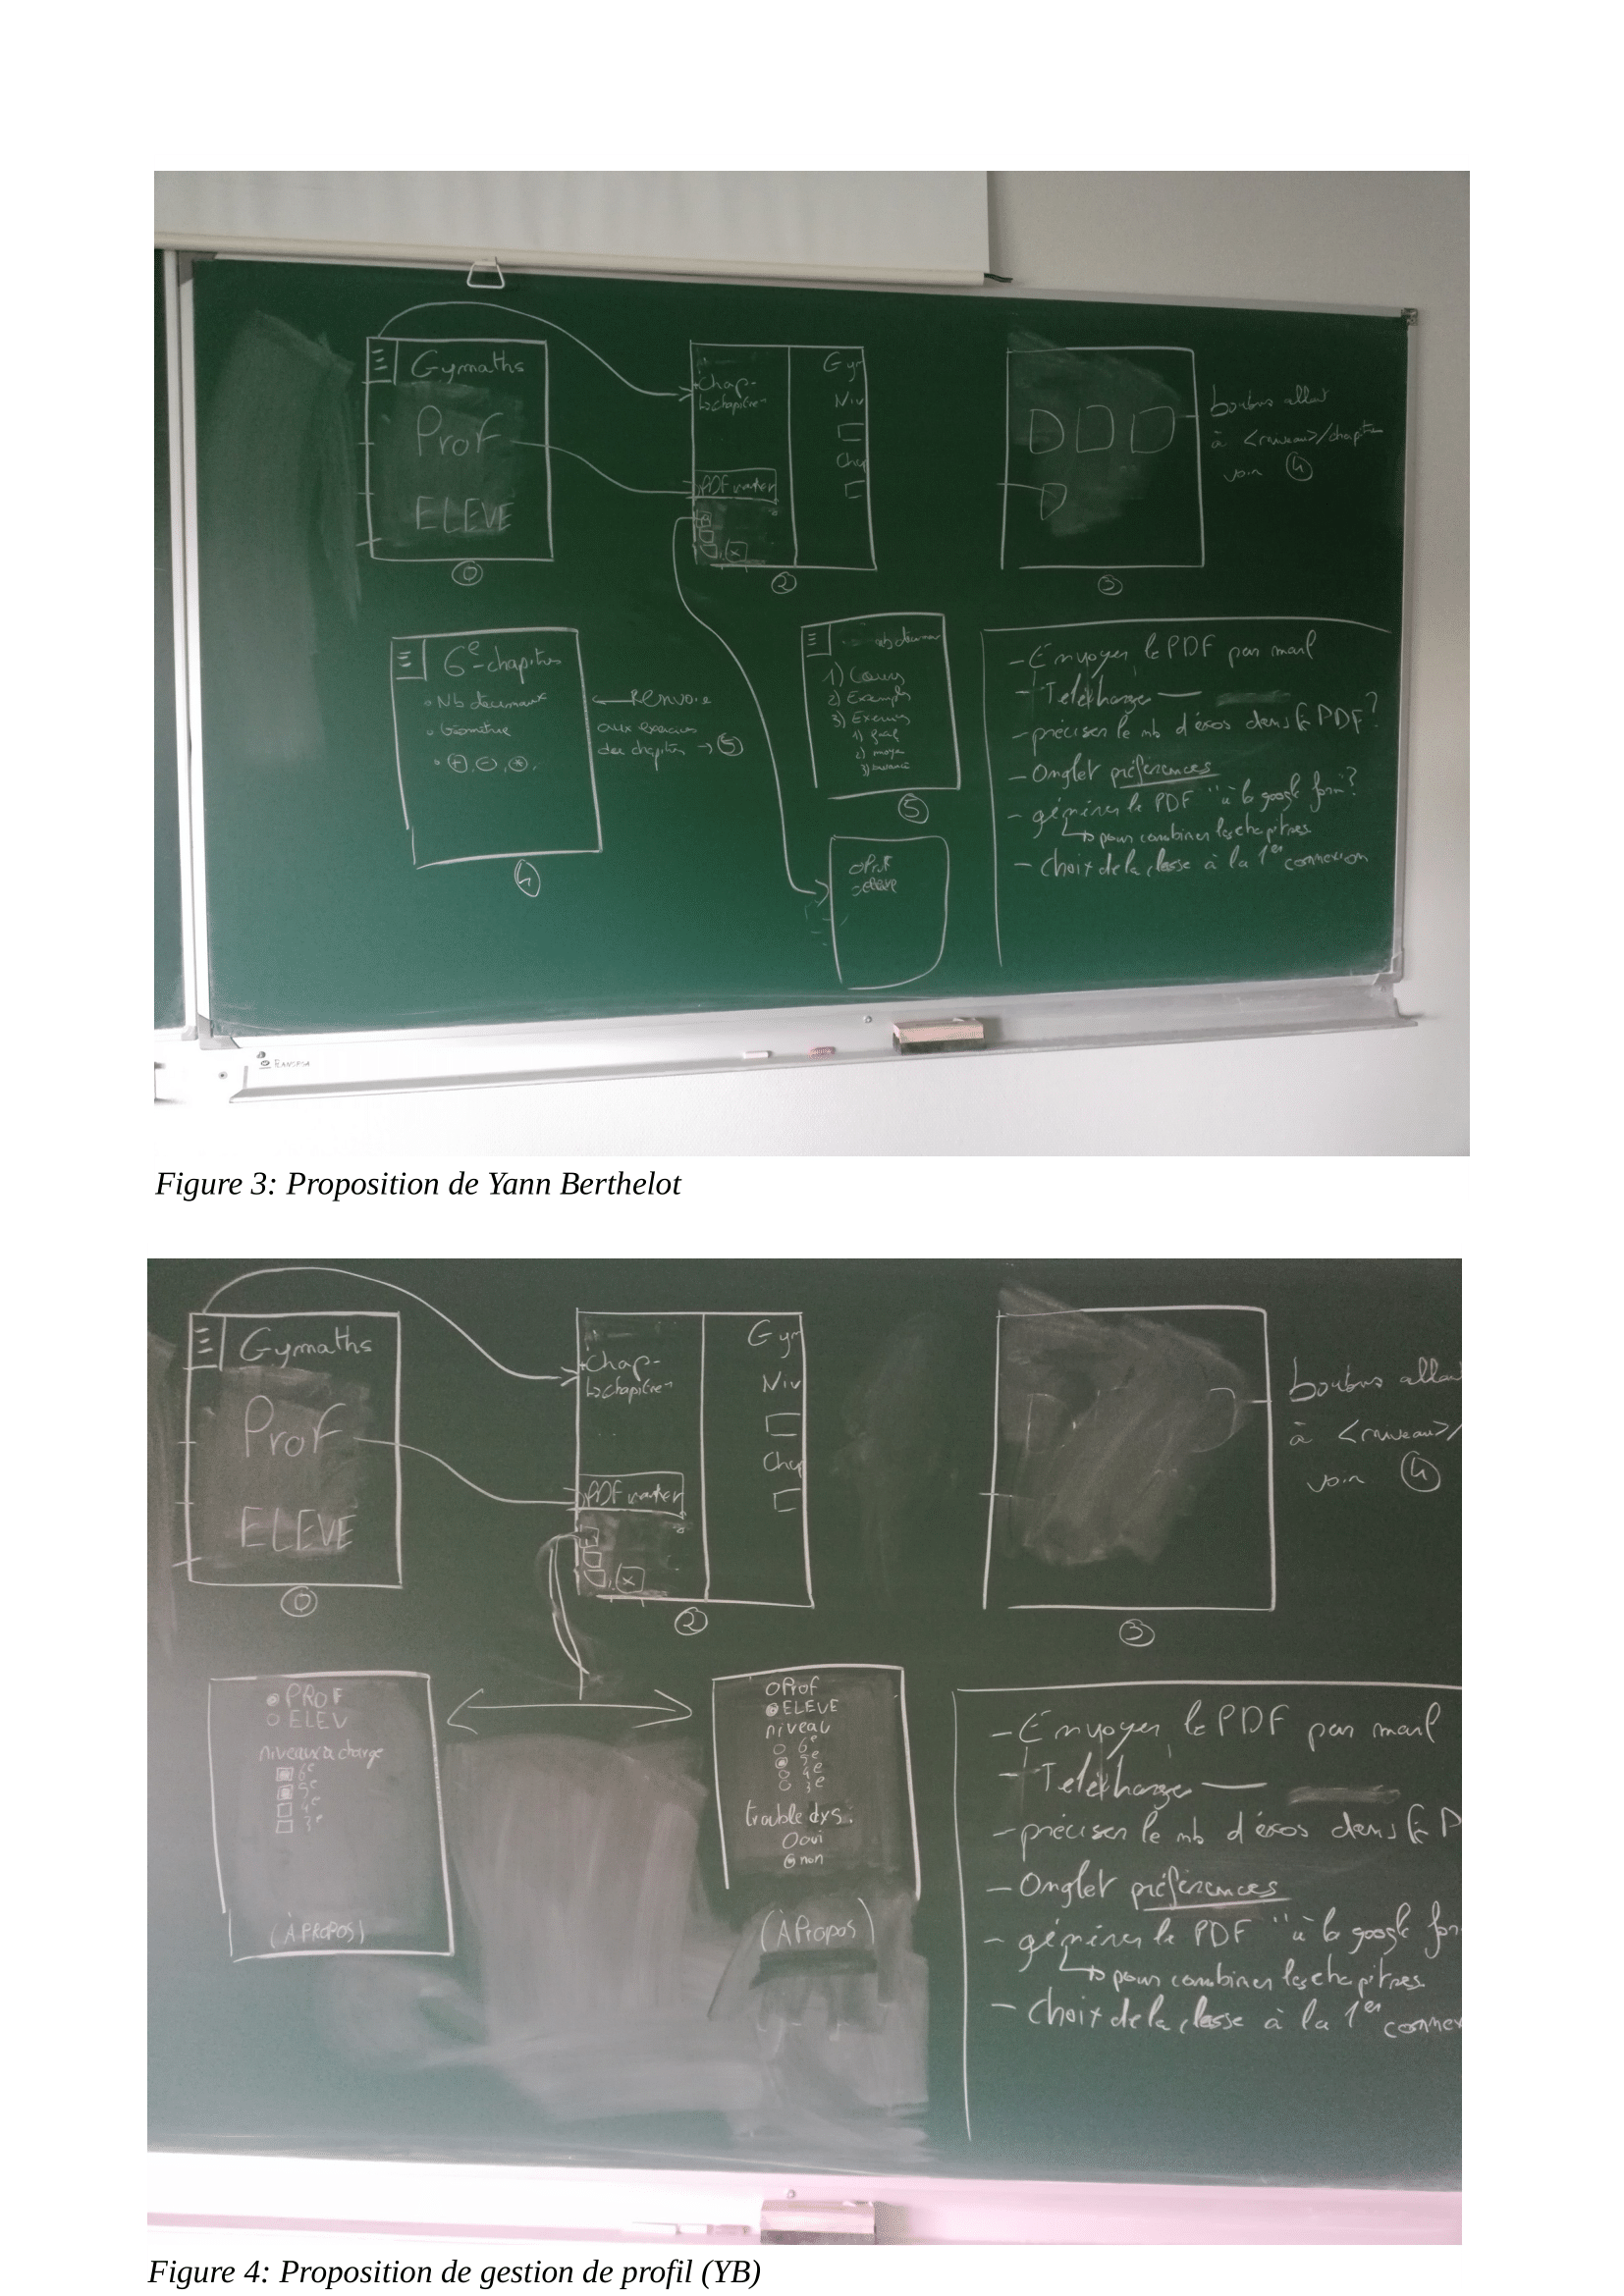 Gymaths
Prof
ELEVE
0
Chap-
↳chapitre
PDF maker
x
2
Gym
Niv
Chap
3
boutons allant
à <niveau>/chapitre
voir 4
6e-chapitres
• Nb décimaux
• Géométrie
• + , - , * .
4
Renvoie
aux exercices
des chapitres → 5
nb décimaux
1) Cours
2) Exemples
3) Exercices
1) facil
2) moyen
5
o Prof
o eleve
- Envoyer le PDF par mail
- Télécharger —
- préciser le nb d'exos dans le PDF?
- Onglet préférences
- générer le PDF "à la google form"?
↳ pour combiner les chapitres
- Choix de la classe à la 1er connexion
Figure 3: Proposition de Yann Berthelot
Gymaths
Prof
ELEVE
0
Chap-
↳chapitre
PDF maker
x
2
Gym
Niv
Chap
3
boutons allant
à <niveau>/
voir 4
PROF
ELEV
niveaux à charge
6e
5e
4e
3e
(À PROPOS)
Prof
ELEVE
niveau
6e
5e
4e
3e
trouble dys:
oui
non
(À Propos)
- Envoyer le PDF par mail
- Télécharger —
- préciser le nb d'exos dans le P
- Onglet préférences
- générer le PDF "à la google for
↳ pour combiner les chapitres
- Choix de la classe à la 1er connex
Figure 4: Proposition de gestion de profil (YB)